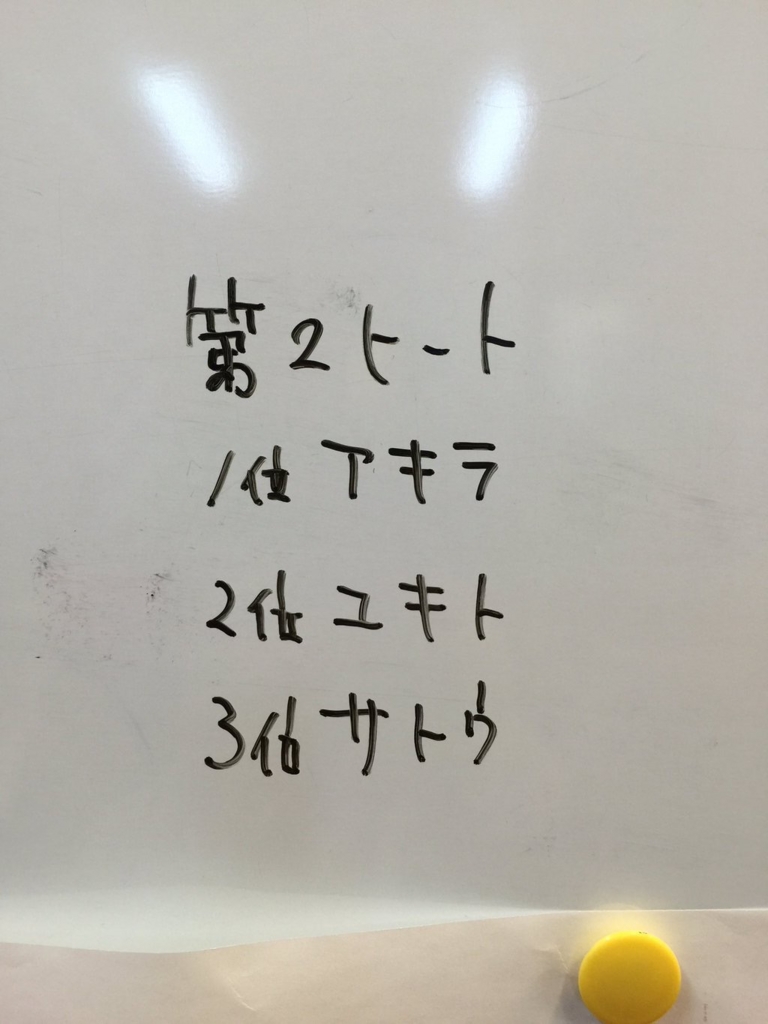 第2ト-ト
1位 アキラ
2位 ユキト
3位 サトウ